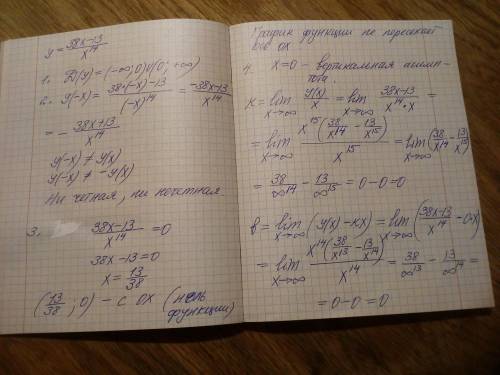 y = (38x-13)/x^14
1. D(y) = (-∞; 0)∪(0; +∞)
2. y(-x) = (38·(-x)-13)/(-x)^14 = (-38x-13)/x^14 =
= - (38x+13)/x^14
y(-x) ≠ y(x)
y(-x) ≠ -y(x)
Ни четная, ни нечетная
3. (38x-13)/x^14 = 0
38x-13=0
x = 13/38
(13/38; 0) - с OX (ноль функции)
График функции не пересекает
ось OX
4. x=0 - вертикальная асимп-
тота
K = lim x→∞ y(x)/x = lim x→∞ (38x-13)/(x^14·x) =
= lim x→∞ x^15(38/x^14 - 13/x^15)/x^15 = lim x→∞ (38/x^14 - 13/x^15)
= 38/∞^14 - 13/∞^15 = 0-0=0
b = lim x→∞ (y(x)-kx) = lim x→∞ ((38x-13)/x^14 - 0·x)
= lim x→∞ x^14(38/x^13 - 13/x^14)/x^14 = 38/∞^13 - 13/∞^14 =
= 0-0 = 0